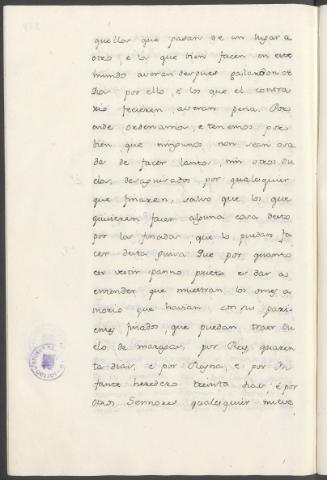 quellos que pasan de un lugar a
otro, e los que bien facen en este
mundo avran despues galardon de
Dios por ello, e los que el contra
rio ficieren, avran pena. Por
ende ordenamos, e tenemos por
bien que ningunos non sean osa
dos de facer llantos, nin otros du
elos desaguisados por qualesquier
que finaren, salvo que los que
quisieren facer alguna cosa desto
por los finados, que lo puedan fa
cer desta guisa Que por quanto
en vestir panno prieto es dar a
entender que muestran los omes a
morio que havian con sus pari
entes finados, que puedan traer du
elo de margas, por Rey, quaren
ta dias, e por Reyna, e por In
fante heredero treinta dias, é por
otros Sennores qualesquier nueve